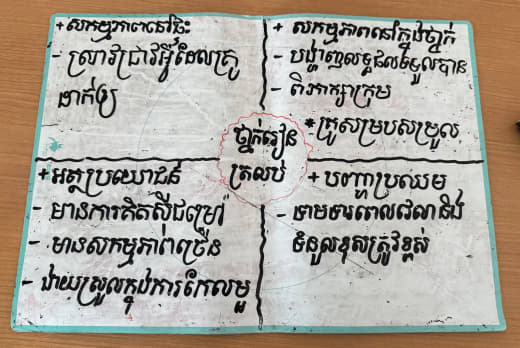 + សកម្មភាពនៅផ្ទះ
- ស្រាវជ្រាវអ្វីដែលគ្រូ
ដាក់ឲ្យ
+ សកម្មភាពនៅក្នុងថ្នាក់
- បង្ហាញលទ្ធផលទទួលបាន
- ពិភាក្សាក្រុម
* គ្រូសម្របសម្រួល
ថ្នាក់រៀន
ត្រលប់
+ អត្ថប្រយោជន៍
- មានការគិតស៊ីជម្រៅ
- មានសកម្មភាពច្រើន
- ងាយស្រួលក្នុងការកែលម្អ
+ បញ្ហាប្រឈម
- ទាមទារពេលវេលានិង
ទំនួលខុសត្រូវខ្ពស់